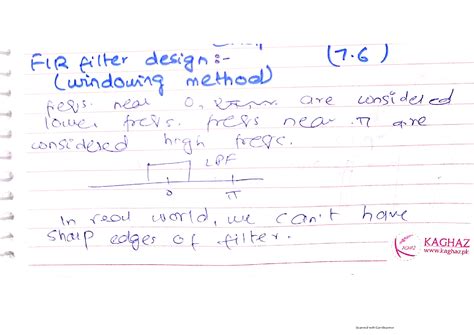 FIR filter design :- (7.6)
(windowing method)
freqs. near 0, are considered
lower freqs. freqs near π are
considered high freqs.
LPF
0 π
In real world, we can't have
sharp edges of filter.
KAGHAZ
www.kaghaz.pk
Scanned with CamScanner